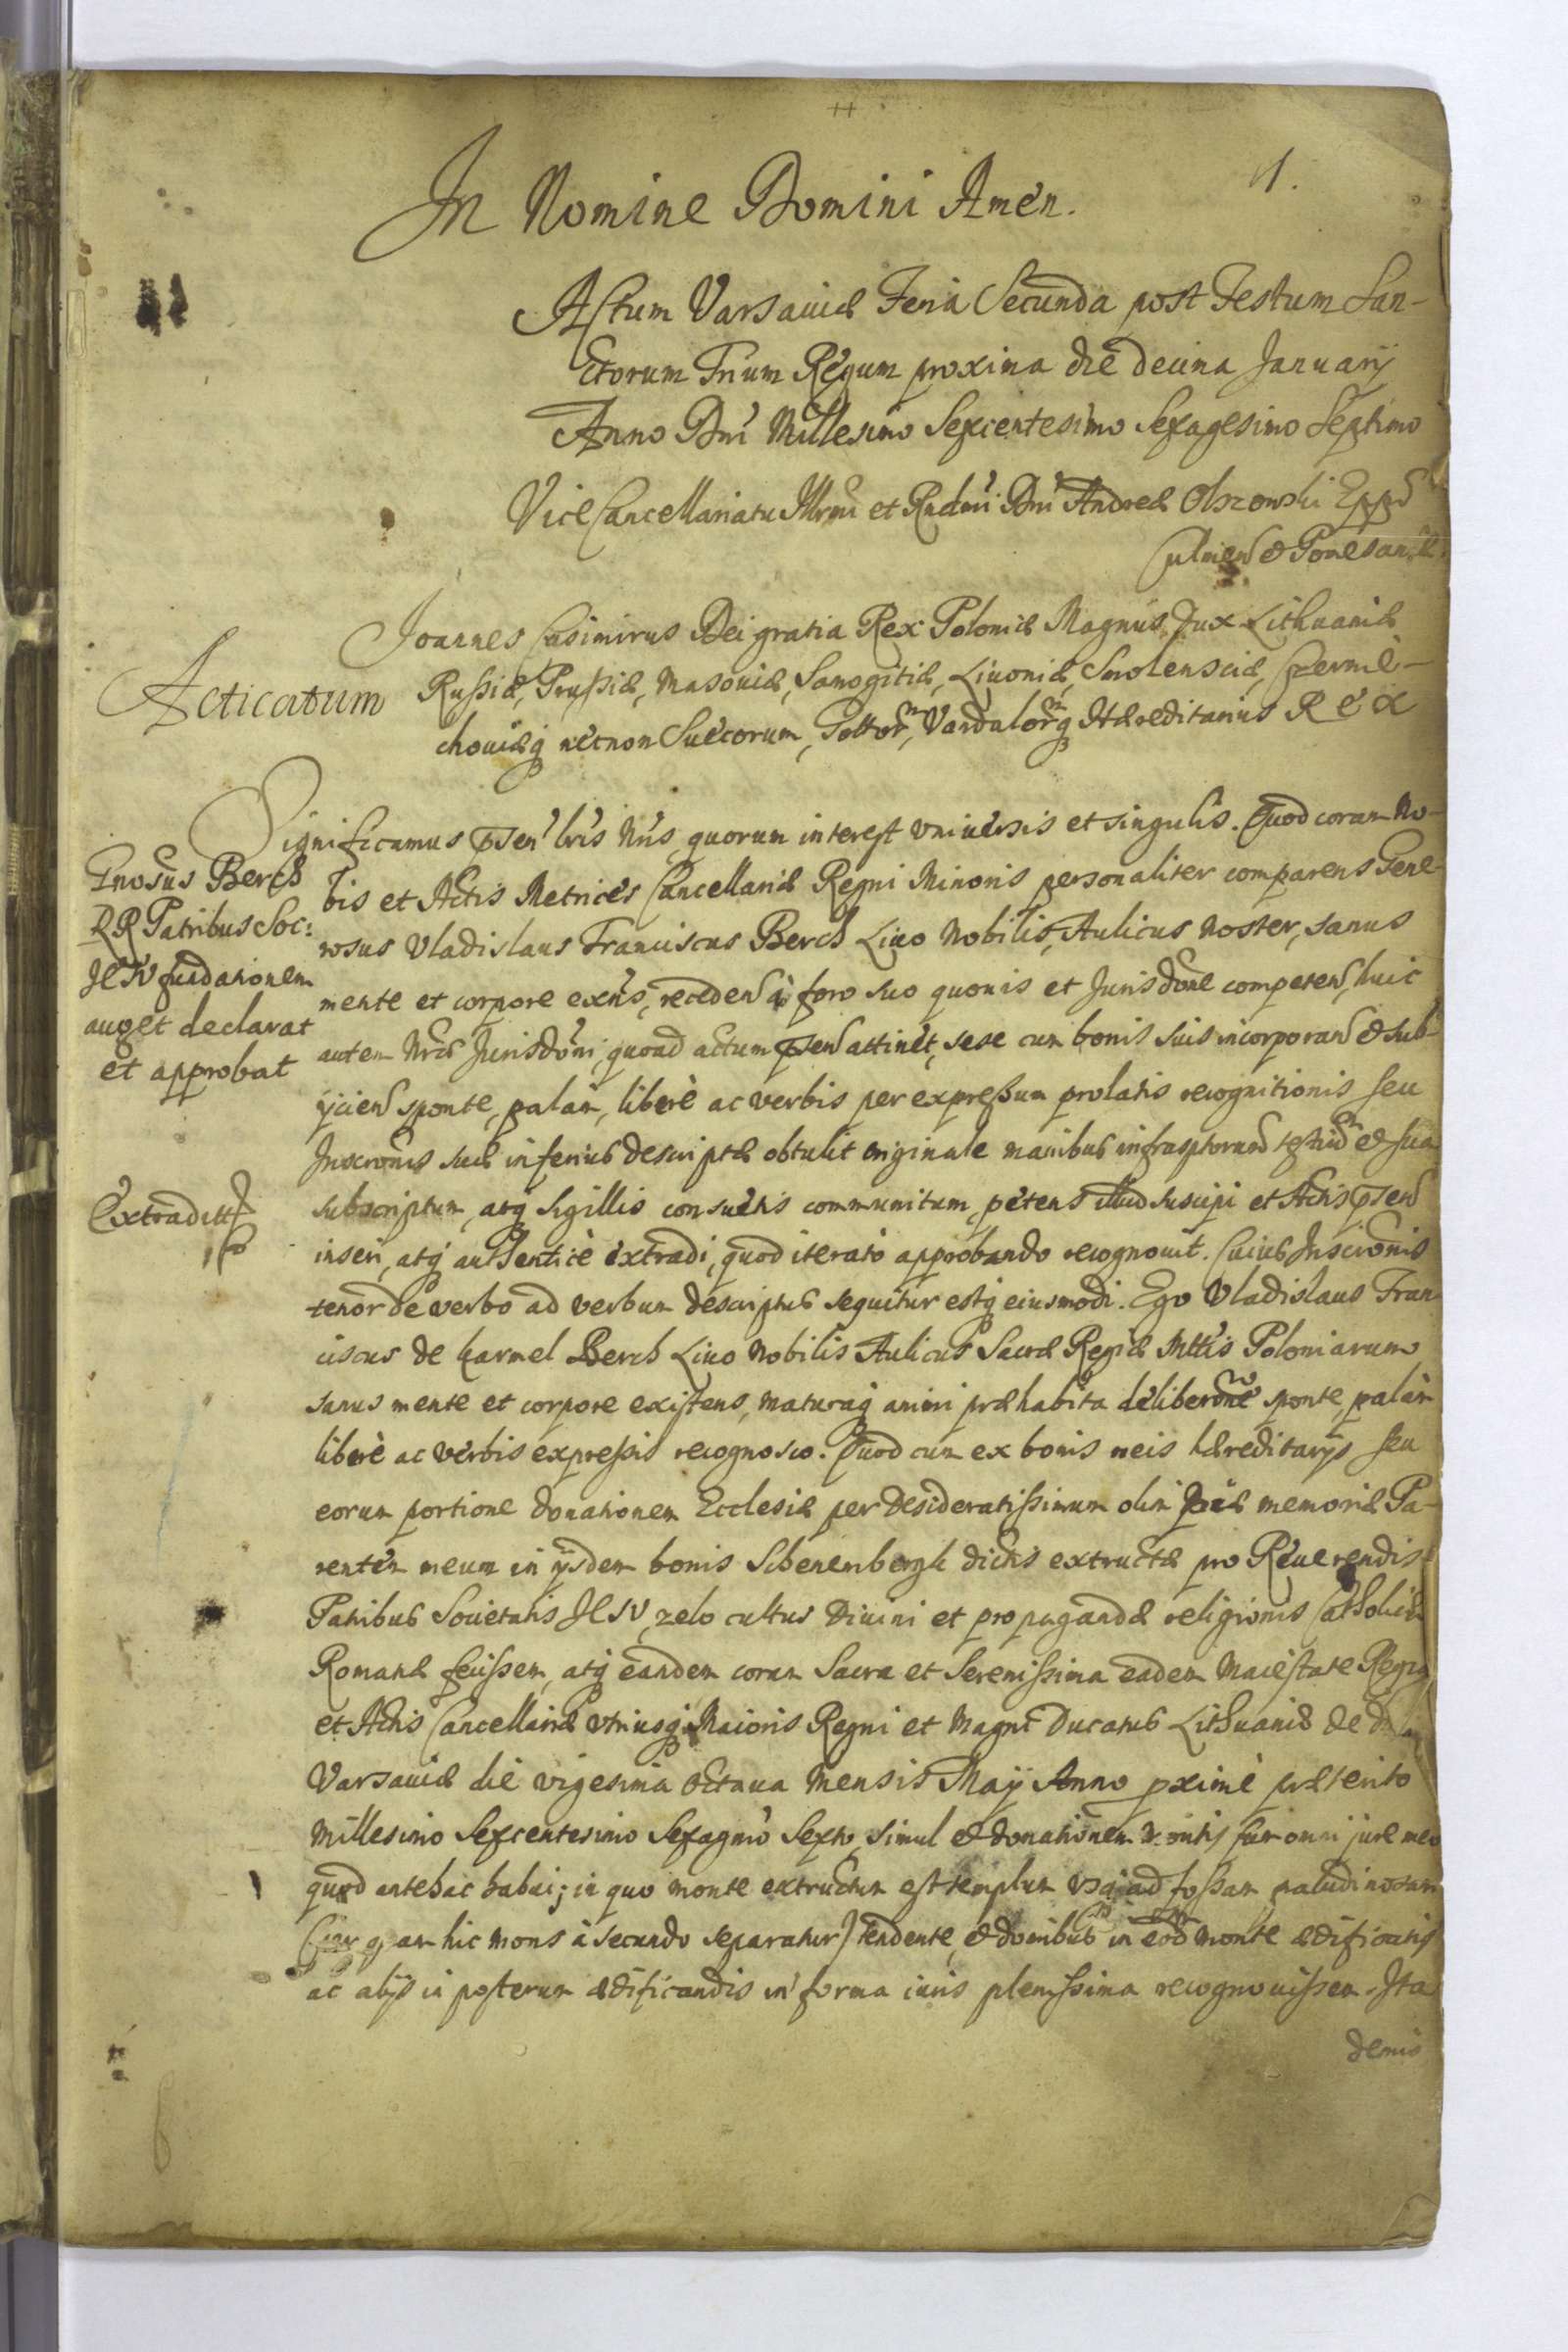 1.
In Nomine Domini Amen.
Actum Varsaviæ Feria Secunda post Festum San-
ctorum Trium Regum proxima die decima Januarij
Anno Dni Millesimo Sexcentesimo Sexagesimo Septimo
Vice Cancellariatu Illrmi et Rndmi Dni Andreæ Olszowski Eppi
Culmen & Pomesaniæ
Joannes Casimirus Dei gratia Rex Poloniæ Magnus Dux Lithuaniæ
Acticatum
Rußiæ, Prußiæ, Masoviæ, Samogitiæ, Livoniæ, Smolensciæ, Czernie-
chouiæq necnon Suecorum, Gottorm, Vandalormq Hæreditarius Rex
Significamus psen lris Nris quorum interest vniuersis et singulis. Quod coram No-
Gnosus Berch
RR Patribus Soc:
JESV fundationem
auget declarat
et approbat
bis et Actis Metrices Cancellariæ Regni Minoris personaliter comparens Gene-
rosus Vladislaus Franciscus Berch Liuo Nobilis, Aulicus Noster, sanus
mente et corpore exns, receden à foro suo quouis et Jurisdone competen, huic
autem Nræ Jurisdoni, quoad actum psen attinet, sese cum bonis suis incorporan & sub-
ijcien sponte, palam, liberè ac verbis per expreßum prolatis recognitionis seu
Inscronis suæ inferius descriptæ obtulit originale manibus infrasptorum testium & sua
Extradit
subscriptum, atq sigillis consuetis communitum, petens illud suscipi et Actis psen
inseri, atq authenticè extradi, quod iterato approbando recognouit. Cuius Inscronis
tenor de verbo ad verbum descriptus sequitur estq eiusmodi. Ego Vladislaus Fran
ciscus de Karmel Berch Liuo Nobilis Aulicus Sacræ Regiæ Mttis Poloniarum
sanus mente et corpore existens, maturaq animi præhabita deliberone sponte, palàm
liberè ac verbis expreßis recognosco. Quod cum ex bonis meis hæreditarijs seu
eorum portione donationem Ecclesiæ per desideratißimum olim piæ memoriæ Pa-
rentem meum in ijsdem bonis Schenenbergk dictis extructæ pro Reuerendis
Patribus Societatis JESV, zelo cultus Diuini et propagandæ religionis Catholicæ
Romanæ fecißem, atq eandem coram Sacra et Serenißima eadem Maiestate Regia
et Actis Cancellariæ vtriusq Maioris Regni et Magni Ducatus Lithuaniæ de
Varsauiæ die vigesima octaua Mensis Maij Anno pxime præterito
Millesimo Sexcentesimo Sexagmo Sexto, simul & donationem montis cum omni jure meo
quod antehac habui; in quo monte extructum est templum vsq ad foßam paludinosam
(per quam hic mons à secundo separatur) tendente, & domibus in eod monte ædificatis
ac alijs in posterum ædificandis in forma iuris plenißima recognouißem. Ita
demis